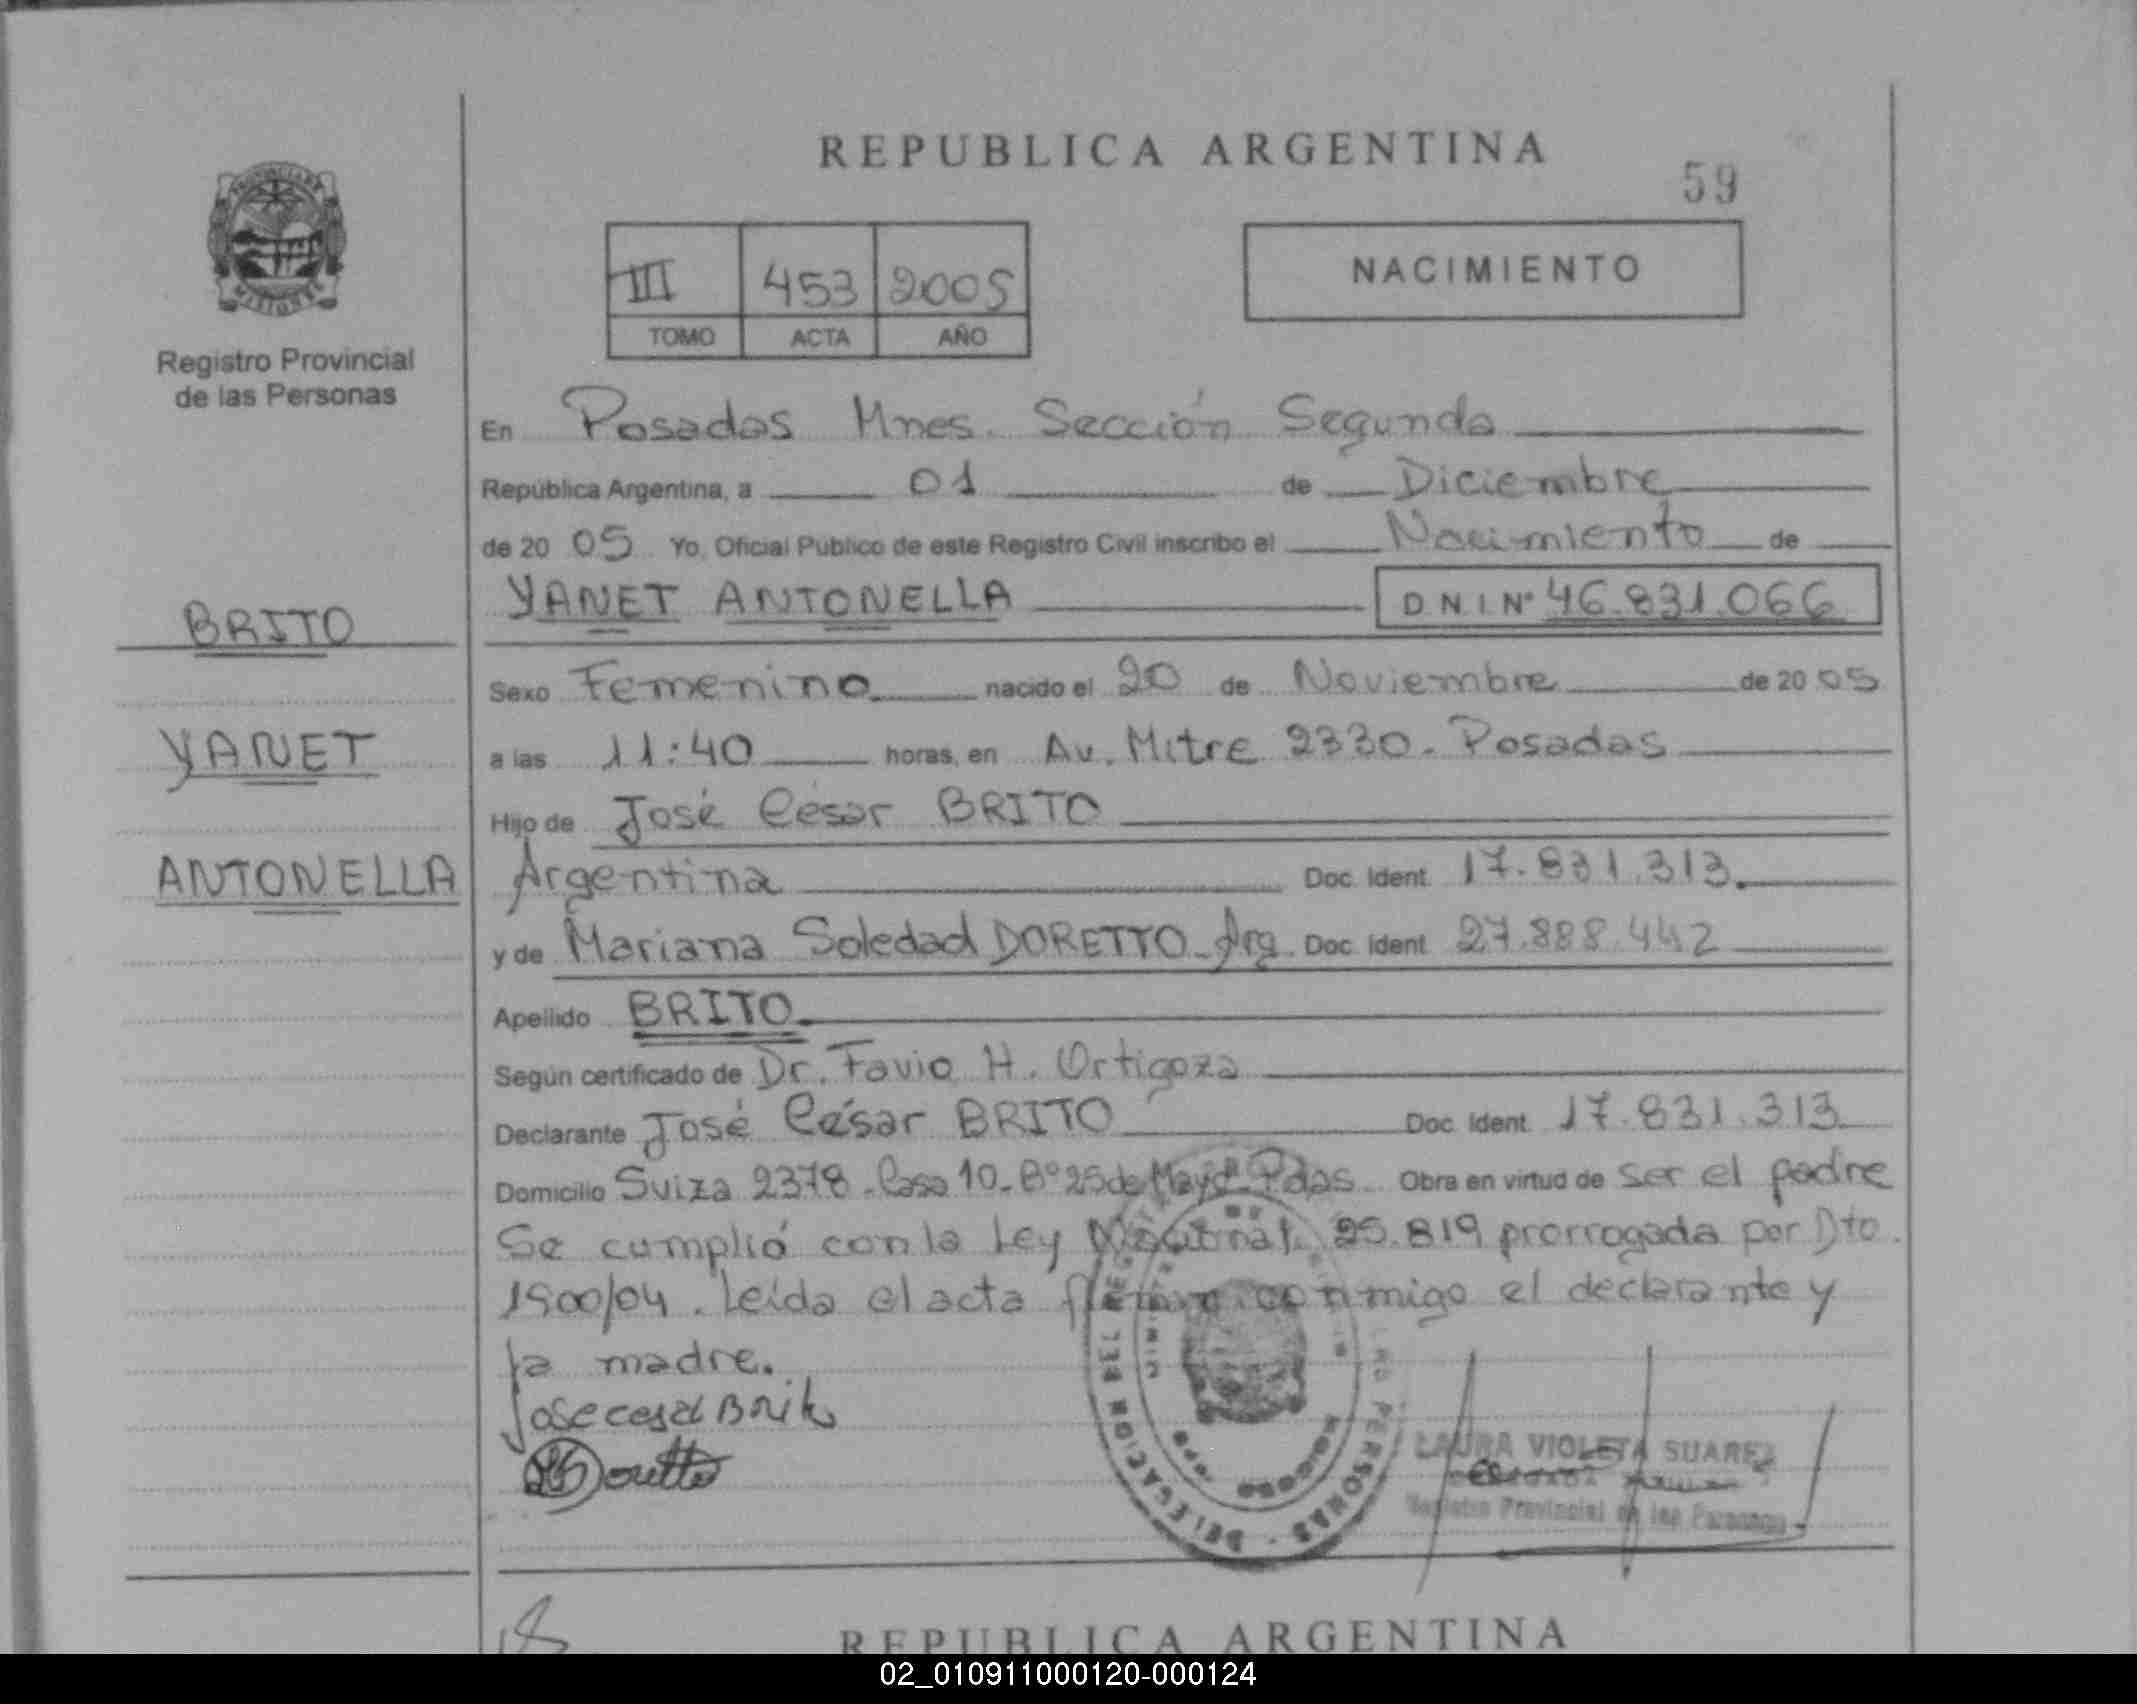 REPUBLICA ARGENTINA
59
III 453 2005
TOMO ACTA AÑO
NACIMIENTO
Registro Provincial
de las Personas
En Posadas Mnes. Sección Segunda
República Argentina, a 01 de Diciembre
de 20 05 Yo, Oficial Público de este Registro Civil inscribo el Nacimiento de
YANET ANTONELLA D.N.I.Nº 46.831.066
BRITO
YANET
ANTONELLA
Sexo Femenino nacido el 20 de Noviembre de 20 05
a las 11:40 horas, en Av. Mitre 2330. Posadas
Hijo de José César BRITO
Argentina Doc. Ident. 17.831.313.
y de Mariana Soledad DORETTO - Arg. Doc. Ident. 27.888.442
Apellido BRITO
Según certificado de Dr. Favio H. Ortigoza
Declarante José César BRITO Doc. Ident. 17.831.313
Domicilio Suiza 2378. Casa 10. Bº 25 de Mayo. Pdas. Obra en virtud de ser el padre
Se cumplió con la Ley Nacional 25.819 prorrogada por Dto.
1900/04. Leída el acta firman conmigo el declarante y
la madre.
Jose cesar Brito
Doretto
DELEGACION DEL REGISTRO DE LAS PERSONAS
LAURA VIOLETA SUAREZ
Registro Provincial de las Personas
REPUBLICA ARGENTINA
02_010911000120-000124